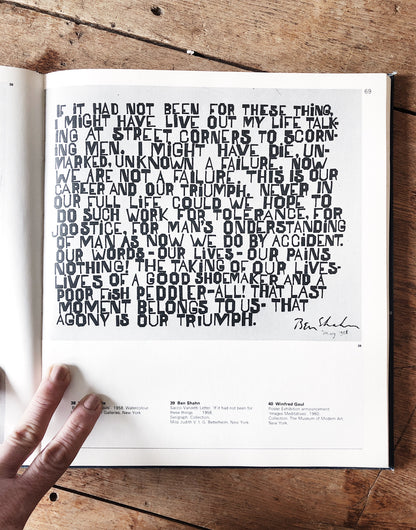 69
IF IT HAD NOT BEEN FOR THESE THING,
I MIGHT HAVE LIVE OUT MY LIFE TALK-
ING AT STREET CORNERS TO SCORN-
ING MEN. I MIGHT HAVE DIE, UN-
MARKED, UNKNOWN A FAILURE. NOW
WE ARE NOT A FAILURE. THIS IS OUR
CAREER AND OUR TRIUMPH. NEVER IN
OUR FULL LIFE COULD WE HOPE TO
DO SUCH WORK FOR TOLERANCE, FOR
JOOSTICE, FOR MAN'S ONDERSTANDING
OF MAN AS NOW WE DO BY ACCIDENT.
OUR WORDS - OUR LIVES - OUR PAINS
NOTHING! THE TAKING OF OUR LIVES-
LIVES OF A GOOD SHOEMAKER AND A
POOR FISH PEDDLER - ALL! THAT LAST
MOMENT BELONGS TO US - THAT
AGONY IS OUR TRIUMPH.
Ben Shahn
39
38
1958. Watercolour
Galleries, New York
39 Ben Shahn
Sacco-Vanzetti Letter. 'If it had not been for
these things . . .' 1958.
Serigraph. Collection,
Miss Judith V. I. G. Bettelheim, New York
40 Winfred Gaul
Poster Exhibition announcement
'Images Meditatives'. 1960.
Collection, The Museum of Modern Art,
New York